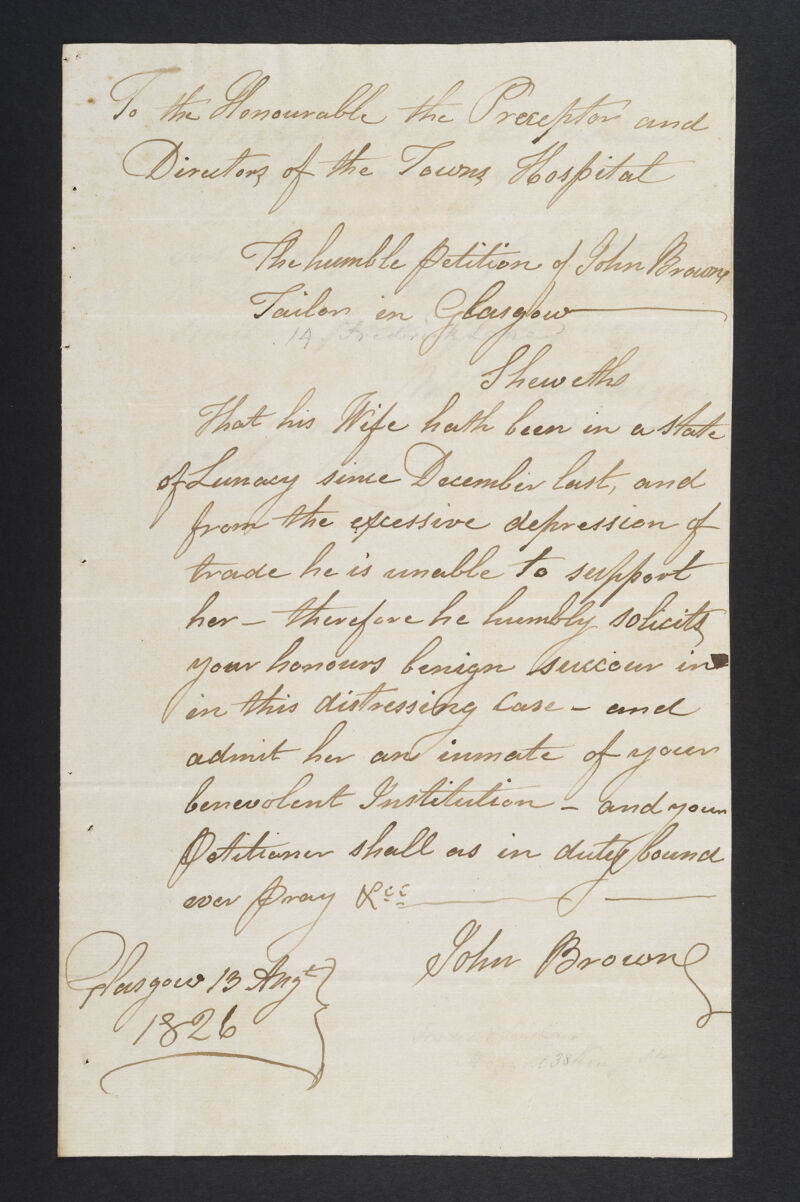 To the Honourable the Preceptor and
Directors of the Towns Hospital
The humble Petition of John Brown
Tailor in Glasgow
14 Frederick
Sheweth
That his Wife hath been in a state
of Lunacy since December last, and
from the excessive depression of
trade he is unable to support
her – therefore he humbly solicits
your honours benign succour in
in this distressing case – and
admit her an inmate of your
benevolent Institution – and your
Petitioner shall as in duty bound
ever pray &cc
John Brown
Glasgow 13 Augt
1826
38